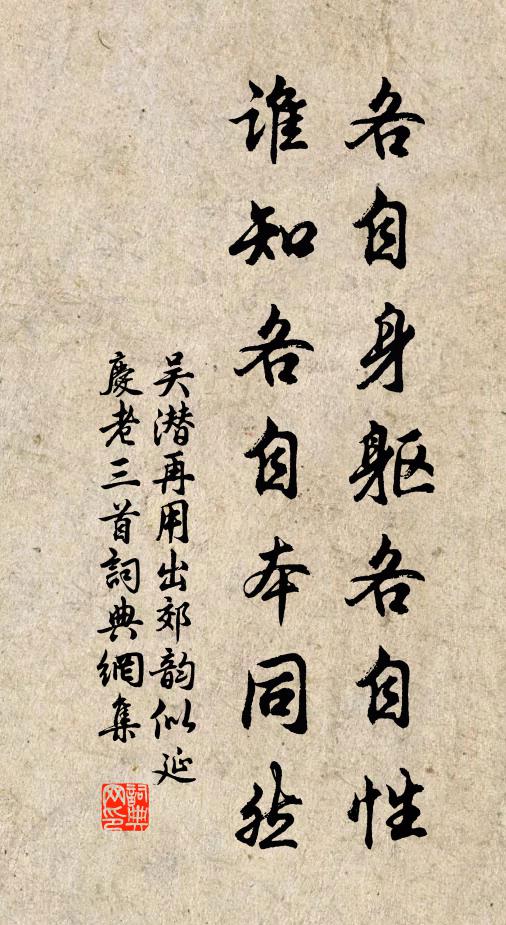 各自身躯各自性
谁知各自本同然
吴潜再用出郊韵似延
慶老三首詞典網集
詞典網印